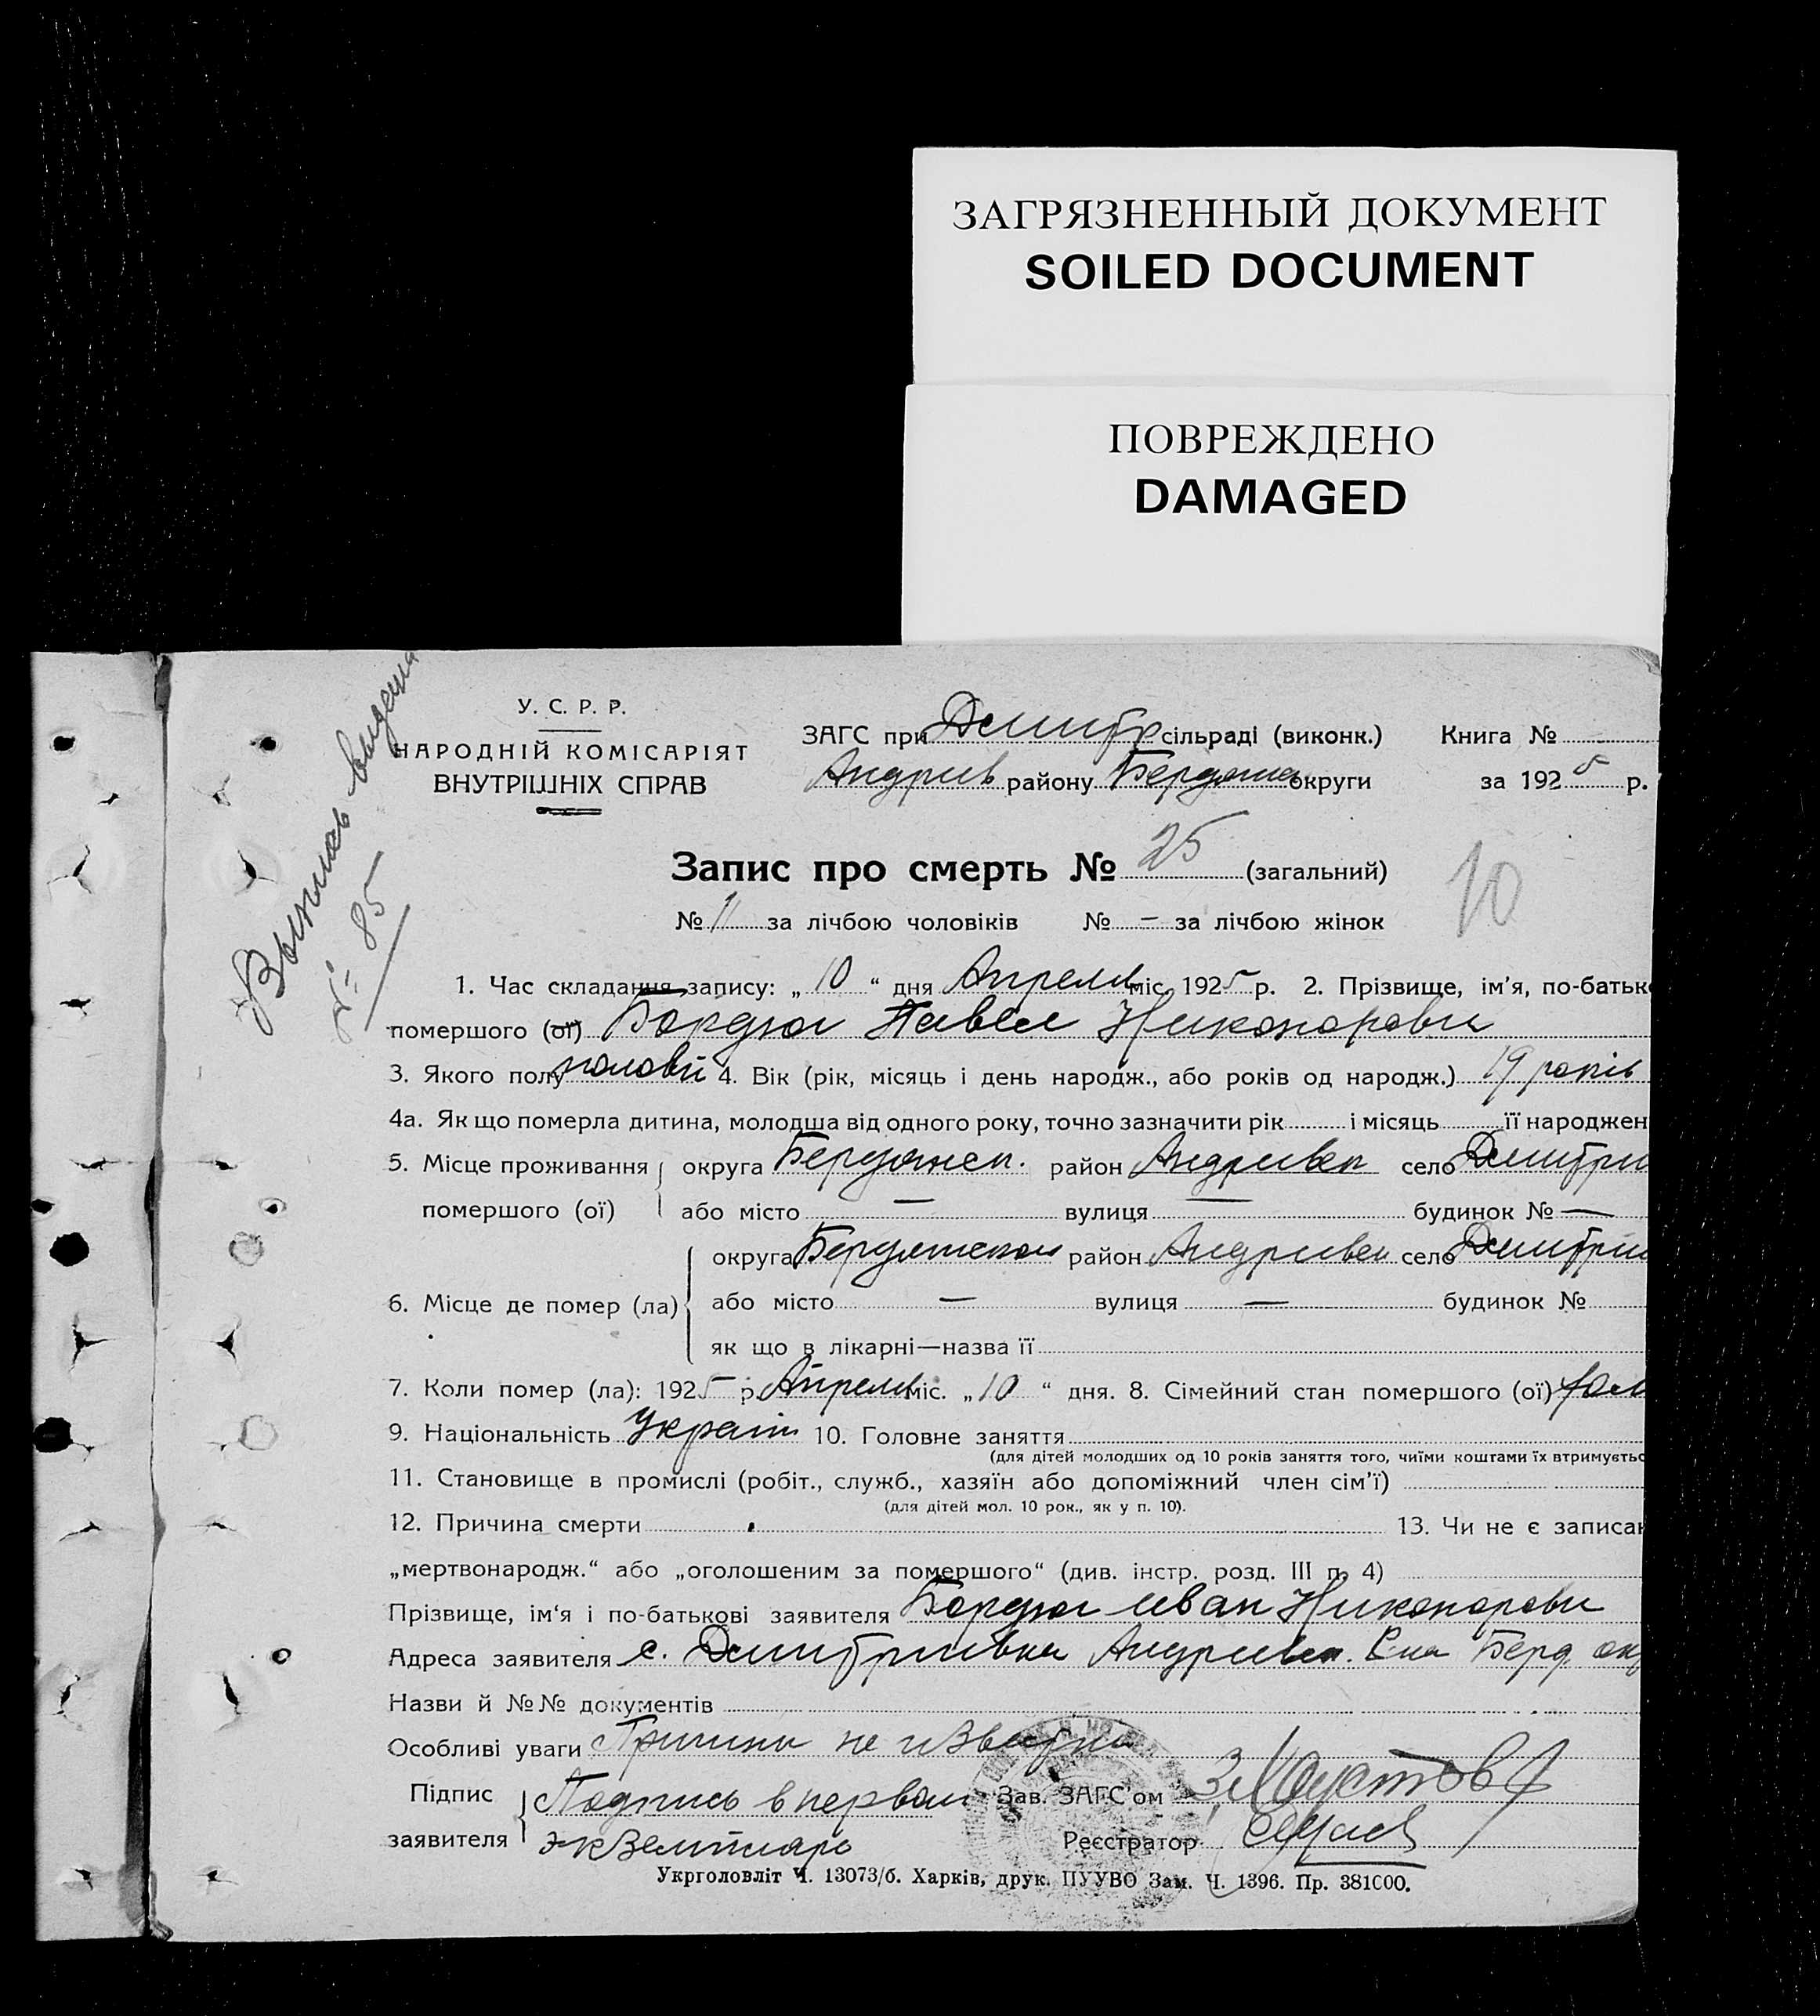 ЗАГРЯЗНЕННЫЙ ДОКУМЕНТ
SOILED DOCUMENT
ПОВРЕЖДЕНО
DAMAGED
У. С. Р. Р.
НАРОДНІЙ КОМІСАРІЯТ
ВНУТРІШНІХ СПРАВ
Выпись выдена
№ 85
ЗАГС при Дмитр сільраді (виконк.) Книга №
Андрив району Бердянс округи за 1925 р.
Запис про смерть № 25 (загальний)
10
№ 11 за лічбою чоловіків № — за лічбою жінок
1. Час складання запису: „ 10 “ дня Апреля міс. 1925 р. 2. Прізвище, ім’я, по-батьк
помершого (ої) Павел Никонорови
3. Якого полу 4. Вік (рік, місяць і день народж., або років од народж.) 19 років
4а. Як що померла дитина, молодша від одного року, точно зазначити рік і місяць її народжен
5. Місце проживання округа Бердянск. район Андривск село Дмитри
помершого (ої) або місто — вулиця — будинок № —
округа район Андривск село Дмитри
6. Місце де помер (ла) або місто — вулиця — будинок №
як що в лікарні—назва її
7. Коли помер (ла): 1925 р. Апреля міс. „ 10 “ дня. 8. Сімейний стан помершого (ої)
9. Національність Украін 10. Головне заняття
(для дітей молодших од 10 років заняття того, чиїми коштами їх втримуєтьс
11. Становище в промислі (робіт., служб., хазяїн або допоміжний член сім’ї)
(для дітей мол. 10 рок., як у п. 10).
12. Причина смерти 13. Чи не є записан
„мертвонародж.“ або „оголошеним за помершого“ (див. інстр. розд. III п. 4)
Прізвище, ім‘я і по-батькові заявителя Иван Никонорови
Адреса заявителя с. Дмитривка Андривск. Берд. окр
Назви й №№ документів
Особливі уваги Причини не
Підпис заявителя Подпись в первом Зав. ЗАГС’ом
экземпляре Реєстратор
Укрголовліт Ч. 13073/б. Харків, друк. ПУУВО Зам. Ч. 1396. Пр. 381000.